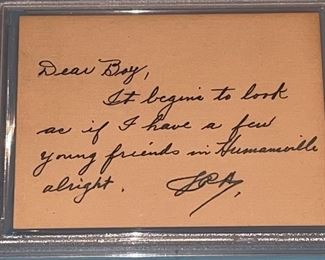 Dear Boy,
It begins to look
as if I have a few
young friends in Humansville
alright.